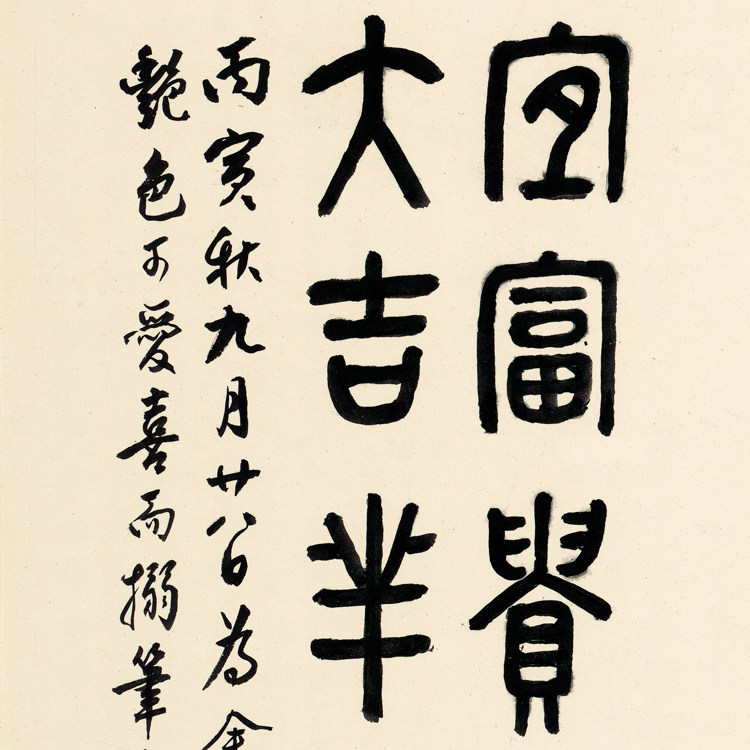 宜富貴
大吉羊
丙寅秋九月廿八日為
艷色可愛喜而搦筆